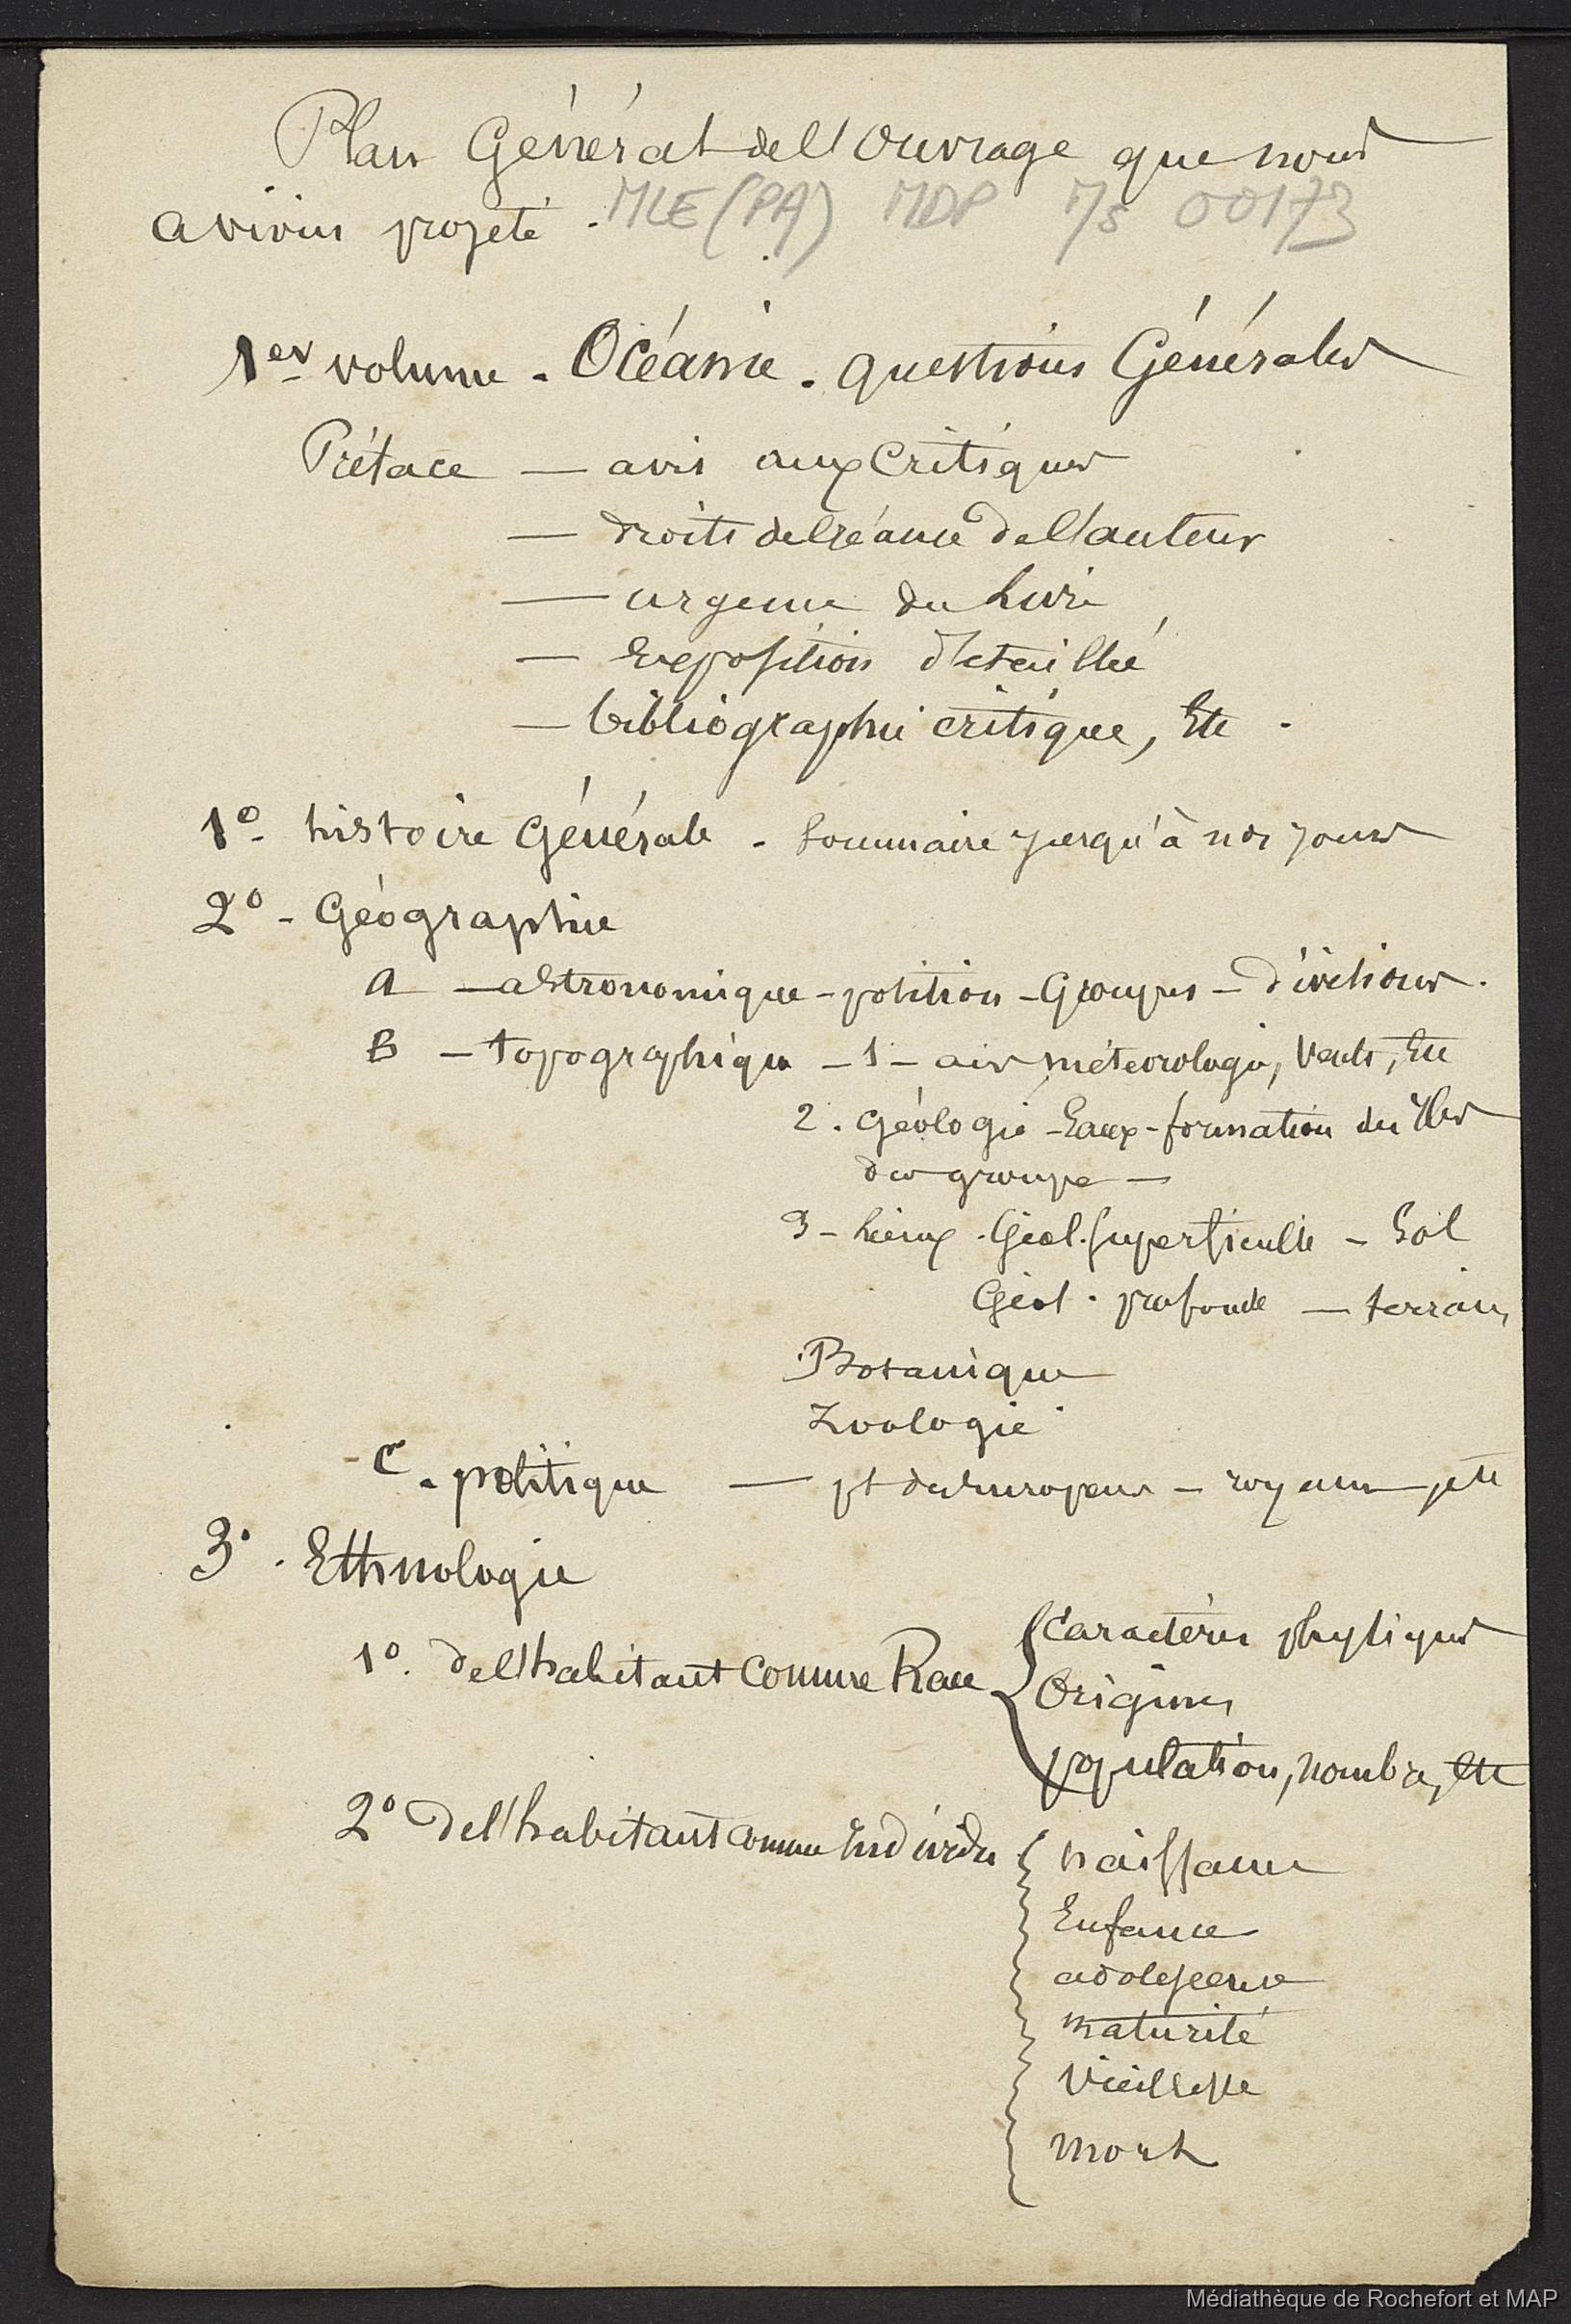 Plan Général de l'Ouvrage que nous
avions projeté.
MLE (PA) MDP Ms 00173
1er volume - Océanie - questions Générales
Préface — avis aux Critiques
— droits de Créance de l'auteur
— urgence du Livre
— Exposition détaillée
— bibliographie critique, Etc -
1° histoire Générale - Sommaire jusqu'à nos jours
2° - Géographie
A — astronomique - position - Groupes - Divisions.
B — topographique - 1 - air météorologie, Vents, Etc
2. Géologie - Eaux - formation des Iles
du groupe —
3 - Lieux - Géol. superficielle - Sol
Géol. profonde — terrains
Botanique
Zoologie
C - politique — pt des Européens - royaume, etc
3° - Ethnologie
1° de l'habitant comme Race
Caractères physiques
Origines
population, nombre, etc
2° de l'habitant comme Individu
naissance
Enfance
adolescence
maturité
Vieillesse
mort
Médiathèque de Rochefort et MAP